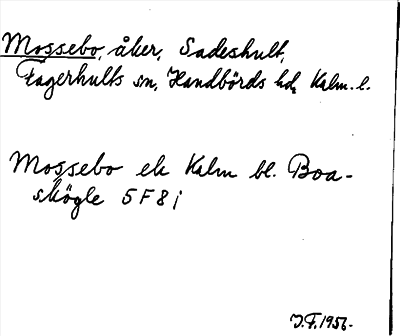 Mossebo, åker, Sadeshult,
Fagerhults sn, Handbörds hd, Kalm. l.
Mossebo ek Kalm bl. Boa-
skögle 5 F 8 i
J.F. 1956.